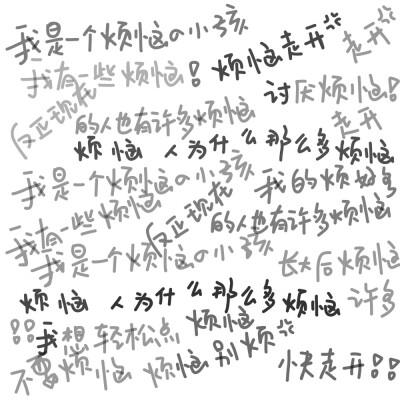 我是一个烦恼の小孩
烦恼走开
走开
我有一些烦恼!
讨厌烦恼!
反正现在
的人也有许多烦恼
走开
烦恼 人为什么那么多烦恼
我是一个烦恼の小孩
我的烦好多
我有一些烦恼
反正现在
的人也有许多烦恼
我是一个烦恼の小孩
长大后烦恼
烦恼 人为什么那么多烦恼
许多
!!我想轻松点
烦恼
不要烦恼 烦恼别烦
快走开!!